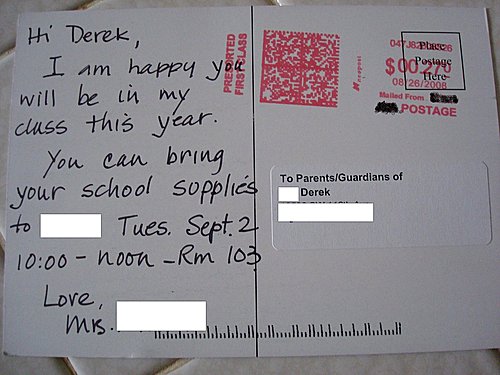 Hi Derek,
I am happy you
will be in my
class this year.
You can bring
your school supplies
to Tues. Sept. 2
10:00 - noon - Rm 103
Love,
Mrs.
PRESORTED
FIRST CLASS
neopost
$00.270
08/26/2008
Mailed From
POSTAGE
Place
Postage
Here
To Parents/Guardians of
Derek